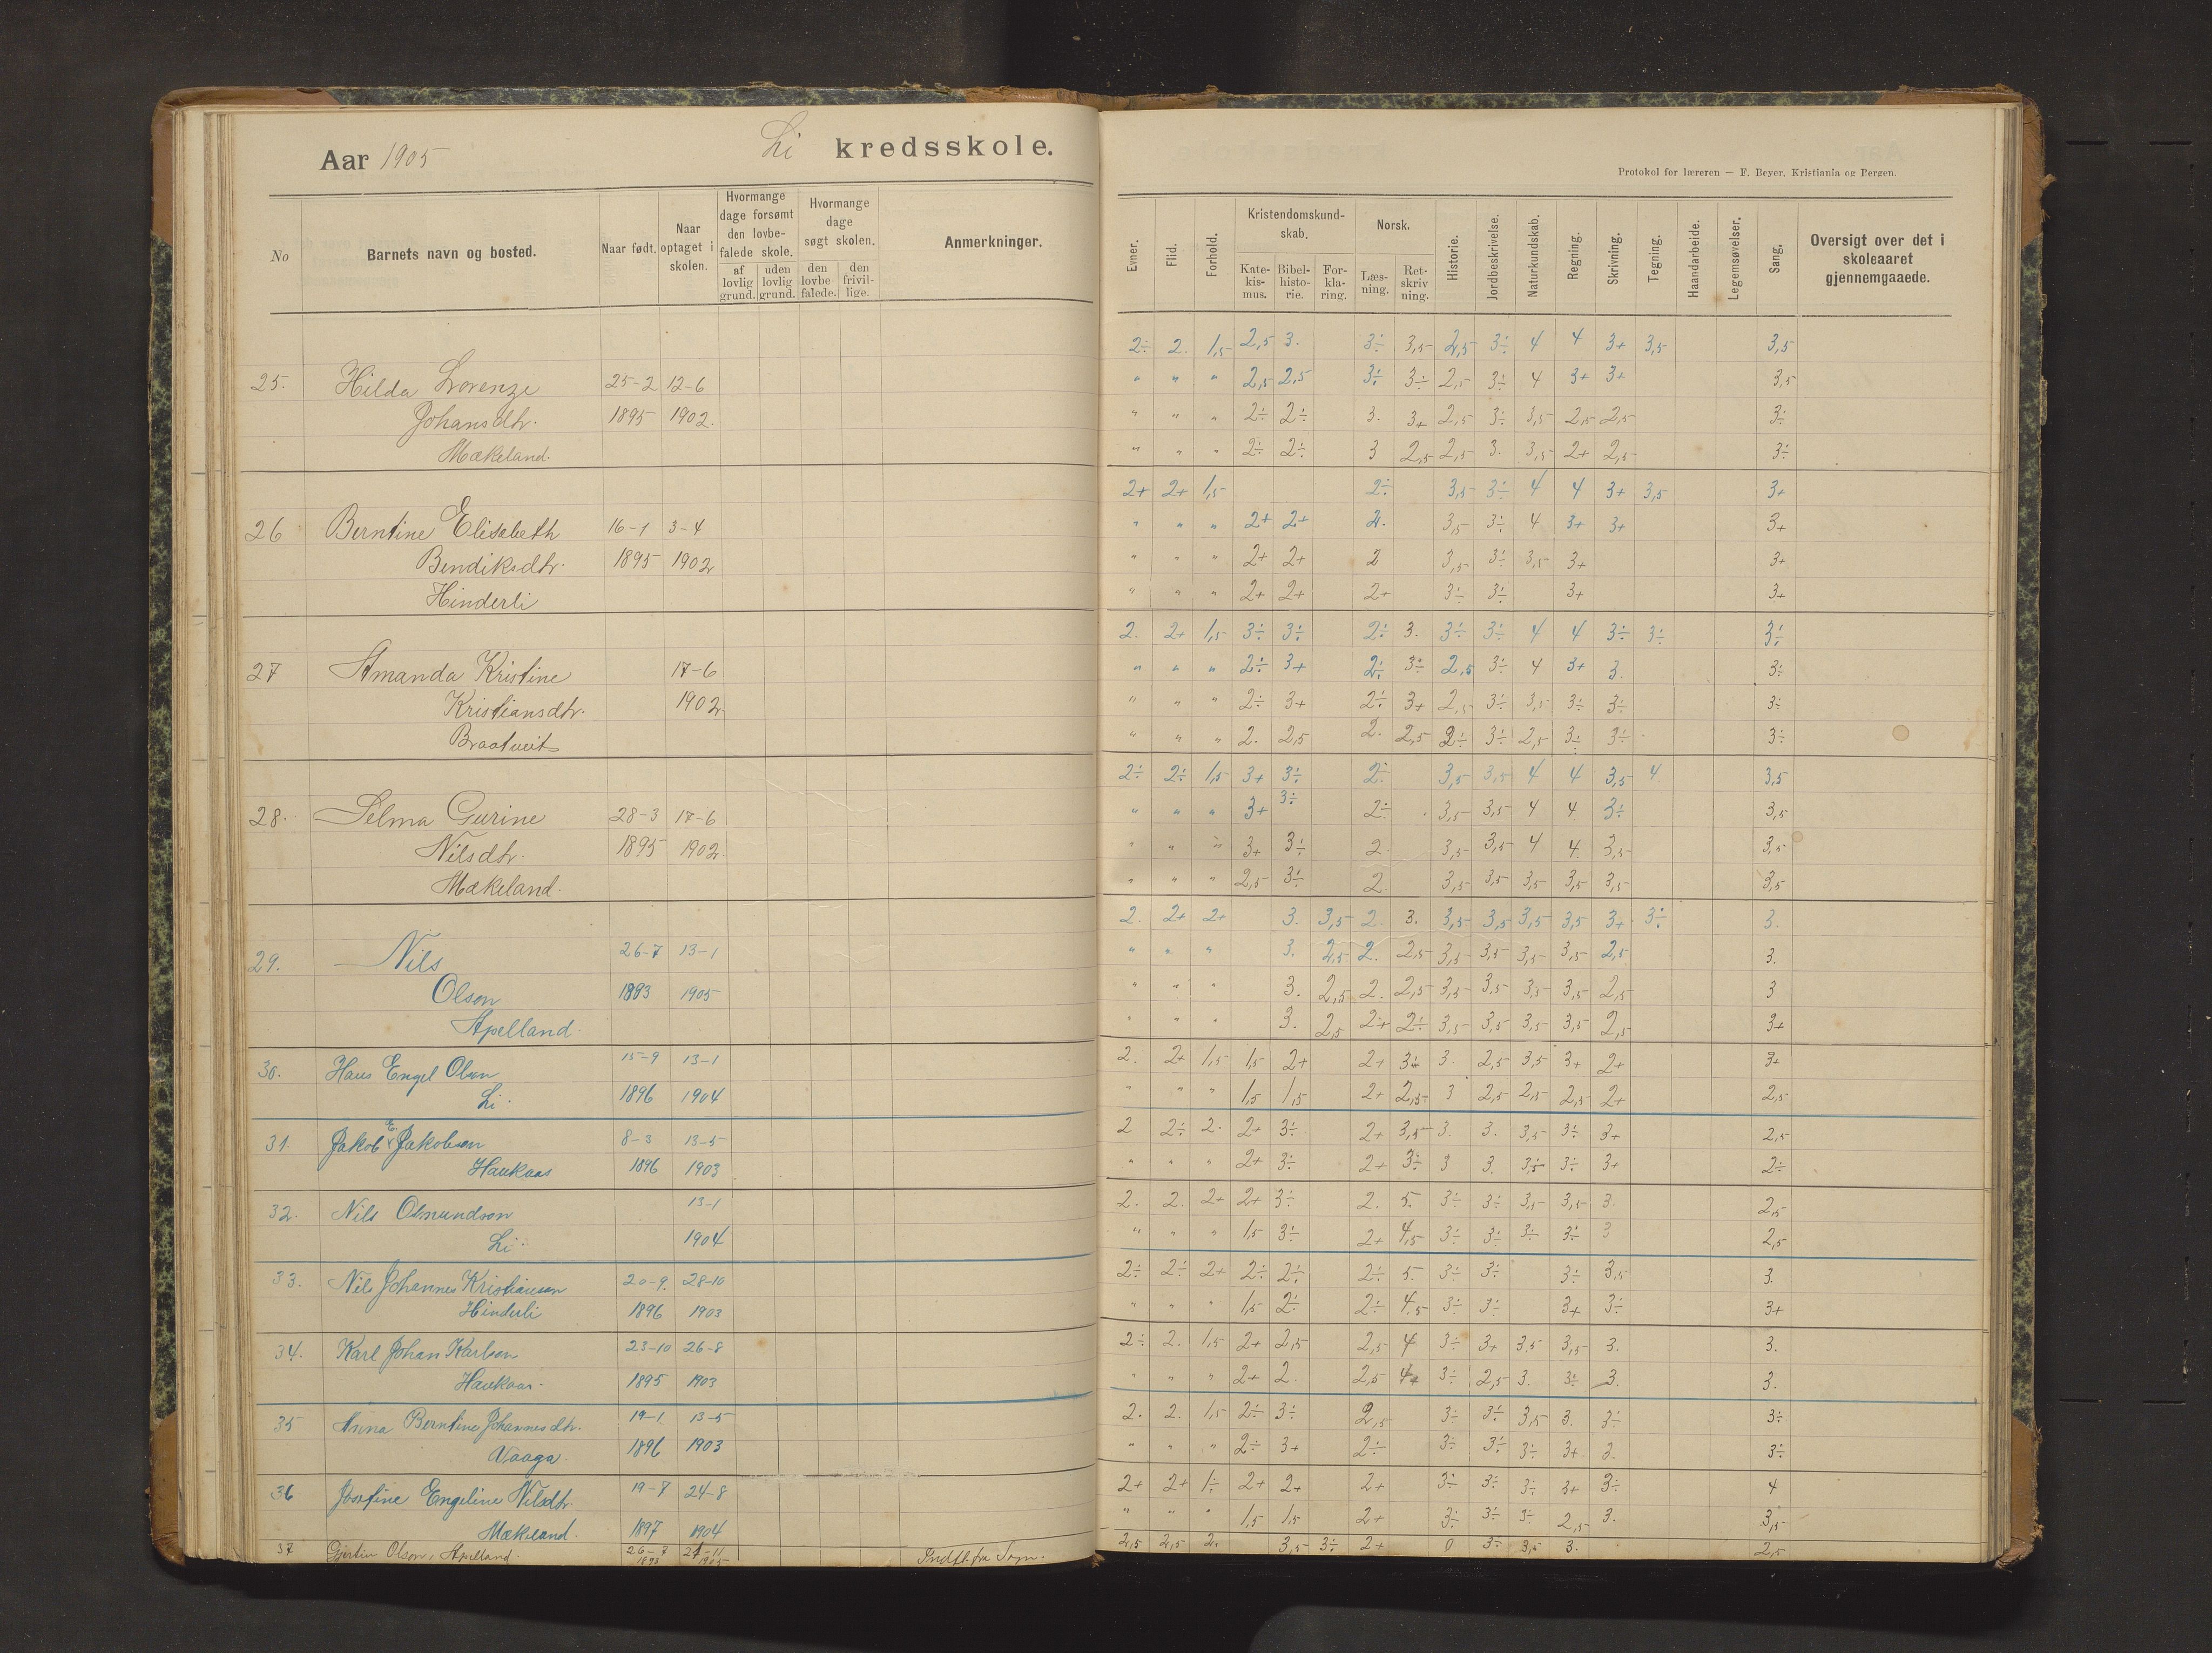 Aar 1905 Li kredsskole.
Protokol for læreren — F. Beyer, Kristiania og Bergen.
No
Barnets navn og bosted.
Naar født.
Naar optaget i skolen.
Hvormange dage forsømt den lovbefalede skole.
af lovlig grund.
uden lovlig grund.
Hvormange dage søgt skolen.
den lovbefalede.
den frivillige.
Anmerkninger.
Evner.
Flid.
Forhold.
Kristendomskundskab.
Katekismus.
Bibelhistorie.
Forklaring.
Norsk.
Læsning.
Retskrivning.
Historie.
Jordbeskrivelse.
Naturkundskab.
Regning.
Skrivning.
Tegning.
Haandarbeide.
Legemsøvelser.
Sang.
Oversigt over det i skoleaaret gjennemgaaede.
2÷ 2. 1,5 2,5 3. 3÷ 3,5 2,5 3÷ 4 4 3+ 3,5 3,5
25. Hilda Lorenze 25-2 12-6 " " " 2,5 2,5 3÷ 3÷ 2,5 3÷ 4 3+ 3+ 3,5
Johansdtr. 1895 1902. " " " 2÷ 2÷ 3. 3+ 2,5 3÷ 3,5 2,5 2,5 3÷
Mækeland. " " " 2÷ 2÷ 3 2,5 2,5 3. 3,5 2+ 2,5 3÷
2+ 2+ 1,5 2÷ 3,5 3÷ 4 4 3+ 3,5 3+
26 Berntine Elisabeth 16-1 3-4 " " " 2+ 2+ 2. 3,5 3÷ 4 3+ 3+ 3+
Bendiksdtr. 1895 1902 " " " 2+ 2+ 2 3,5 3÷ 3,5 3+ 3+
Hinderli " " " 2+ 2+ 2+ 3÷ 3÷ 3+ 3+
2. 2+ 1,5 3÷ 3÷ 2÷ 3. 3÷ 3÷ 4 4 3÷ 3÷ 3÷
27 Amanda Kristine 17-6 " " " 2÷ 3+ 2÷ 3÷ 2,5 3÷ 4 3+ 3. 3÷
Kristiansdtr. 1902. " " " 2÷ 3+ 2÷ 3+ 2,5 3÷ 3,5 3÷ 3÷ 3÷
Braatveit " " " 2. 2,5 2. 2,5 2÷ 3÷ 2,5 3÷ 3÷ 3÷
2÷ 2÷ 1,5 3+ 3÷ 2÷ 3,5 3,5 4 4 3,5 4 3,5
28. Selma Gurine 28-3 17-6 " " " 3+ 3÷ 2÷ 3,5 3,5 4 4 3÷ 3,5
Nilsdtr. 1895 1902. " " " 3+ 3÷ 2. 3,5 3,5 4 4. 3,5 3,5
Mækeland. " " " 2,5 3÷ 2. 3,5 3,5 3,5 3,5 3,5 3,5
2. 2+ 2+ 3. 3,5 2. 3. 3,5 3,5 3,5 3,5 3+ 3÷ 3.
29. Nils 26-7 13-1 " " " 3. 2,5 2. 2,5 3,5 3,5 3,5 3,5 2,5 3.
Olson 1893 1905 " " " 3. 2,5 2. 2,5 3,5 3,5 3,5 3,5 2,5 3
Apelland. " " " 3. 2,5 2+ 2÷ 3,5 3,5 3,5 3,5 2,5 3+
30. Hans Engel Olson 15-9 13-1 2. 2+ 1,5 1,5 2+ 2+ 3÷ 3. 2,5 3,5 3+ 2+ 3+
Li. 1896 1904 " " " 1,5 1,5 2+ 2,5 3 2,5 2,5 2,5 2+ 2,5
31. Jakob E. Jakobsen 8-3 13-5 2 2÷ 2. 2+ 3÷ 2+ 3,5 3. 3. 3,5 3÷ 3+ 2,5
Haukaas 1896 1903 " " " 2+ 3÷ 2+ 3÷ 3 3. 3,5 3÷ 3+ 2÷
32. Nils Osmundson 13-1 2. 2. 2+ 2+ 3÷ 2. 5. 3÷ 3÷ 3,5 3,5 3. 2,5
Li. 1904 " " " 1,5 3÷ 2+ 4,5 3÷ 3÷ 3÷ 3÷ 3 2,5
33. Nils Johannes Kristiansen 20-9. 28-10 2÷ 2÷ 2+ 2÷ 2÷ 2÷ 5. 3÷ 3÷ 3÷ 3,5 3.
Hinderli 1896 1903 " " " 1,5 2÷ 2÷ 4,5 3÷ 3÷ 3+ 3÷ 3+
34. Karl Johan Karlson 23-10 26-8 2÷ 2. 1,5 2+ 2,5 2,5 4 3÷ 3+ 3,5 3,5 3. 3.
Haukaas. 1895 1903 " " " 2+ 2. 2,5 4+ 3÷ 2,5 3. 3÷ 3. 3.
35 Anna Berntine Johannesdtr. 19-1 13-5 2. 2. 1,5 2÷ 3÷ 2,5 3÷ 3÷ 3,5 3. 3÷ 3÷
Vaaga 1896 1903 " " " 2÷ 3+ 2÷ 3÷ 3÷ 3÷ 3+ 3. 3÷
36 Josefine Engeline Nilsdtr. 19-7 24-8 2+ 2+ 1÷ 2+ 2+ 2+ 3÷ 3÷ 3÷ 3+ 3÷ 4
Mækeland. 1897 1904 " " " 1,5 1,5 2+ 3÷ 3÷ 3÷ 2,5 3. 3,5
37 Gjertin Olson, Apelland. 26-7 1893 1905 Indfl. fra 2,5 2,5 2. 3,5 3÷ 2+ 0 3÷ 3,5 3. 2,5